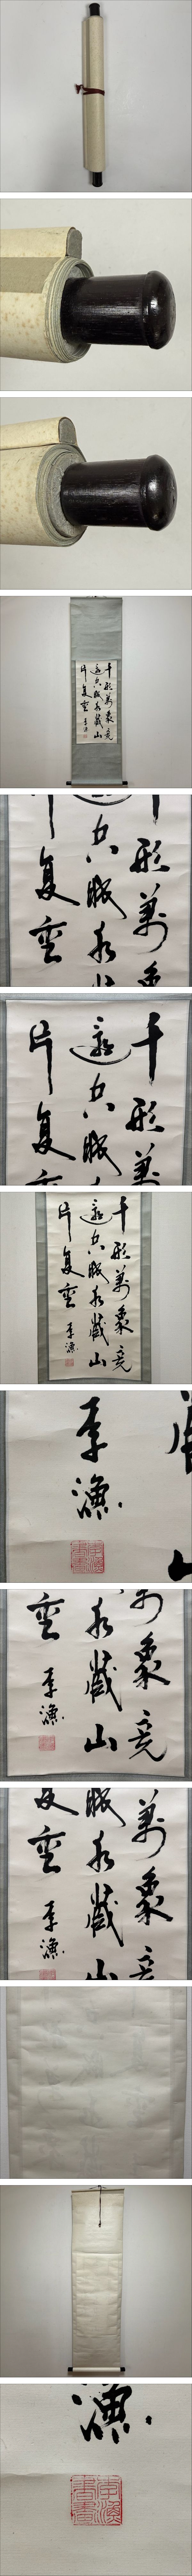 千形萬象竟
還空映水藏山
片復重
李漁
李漁書畫